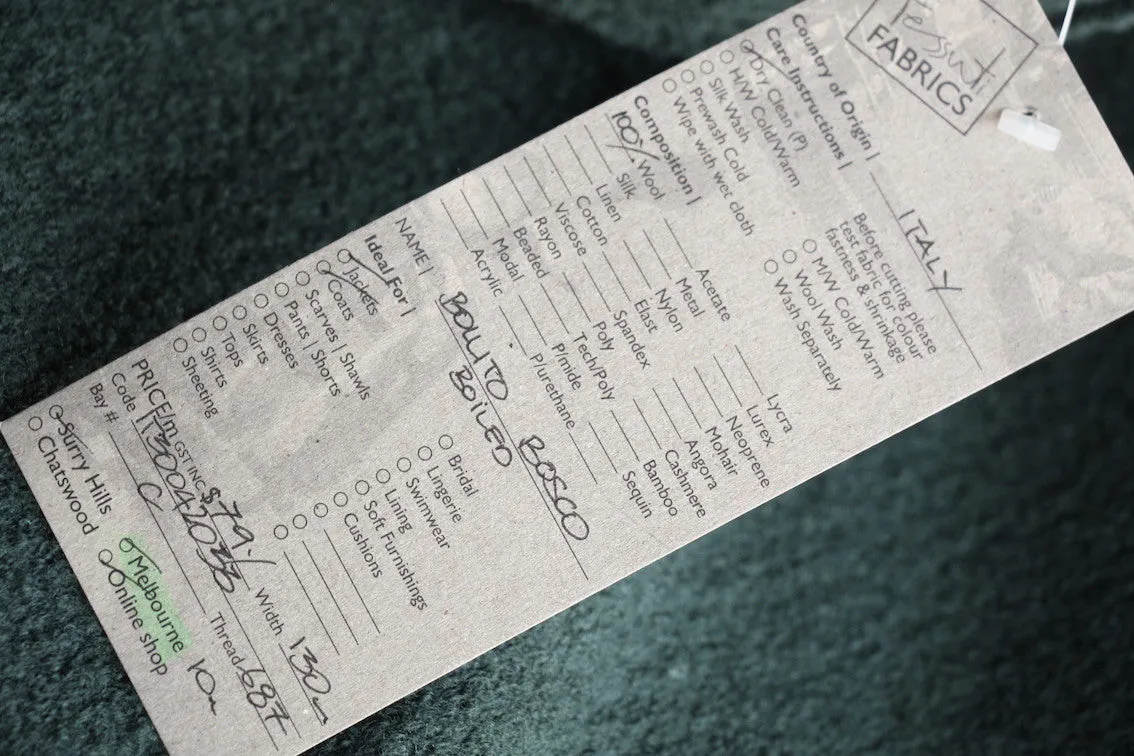 Tessuti
FABRICS
Country of Origin | ITALY
Care Instructions |
Before cutting please
test fabric for colour
fastness & shrinkage
Dry Clean (P)
H/W Cold/Warm
Silk Wash
Prewash Cold
Wipe with wet cloth
M/W Cold/Warm
Wool Wash
Wash Separately
Composition |
100% Wool
Silk
Linen
Cotton
Viscose
Rayon
Beaded
Modal
Acrylic
Acetate
Metal
Nylon
Elast
Spandex
Poly
Tech/Poly
P/mide
P/urethane
Lycra
Lurex
Neoprene
Mohair
Angora
Cashmere
Bamboo
Sequin
NAME | BOLLITO BOSCO
BOILED
Ideal For |
Jackets
Coats
Scarves | Shawls
Pants | Shorts
Dresses
Skirts
Tops
Shirts
Sheeting
Bridal
Lingerie
Swimwear
Lining
Soft Furnishings
Cushions
PRICE/m GST INC $79./ Width 130m
Code Thread 687
Bay # C
Surry Hills
Chatswood
Melbourne 10m
Online shop